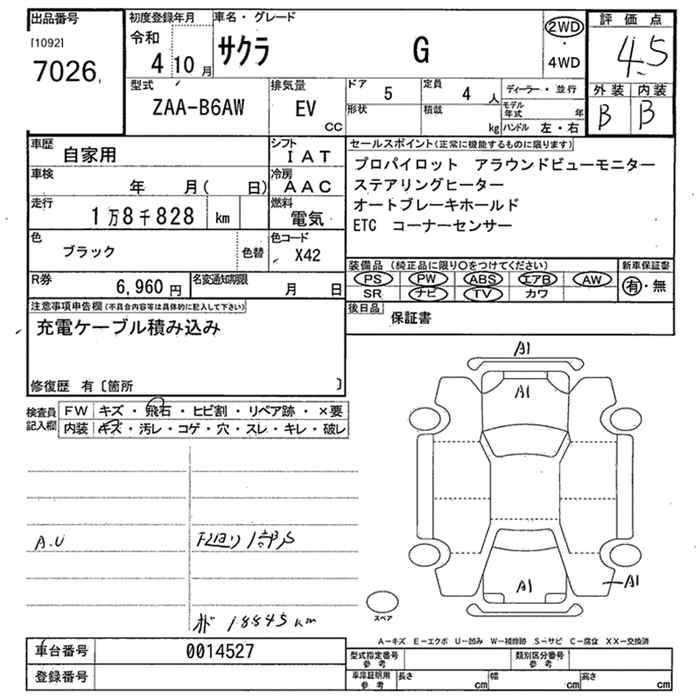 出品番号
[1092]
7026
初度登録年月
令和
4 10月
車名・グレード
サクラ G
2WD
・
4WD
評価点
4.5
外装 内装
B B
型式
ZAA-B6AW
排気量
EV
CC
ドア 5
定員 4 人
形状
積載 kg
ディーラー・並行
モデル年式 年
ハンドル 左・右
車歴
自家用
シフト
IAT
車検
年 月( 日)
冷房
AAC
走行
1万8千828 km
燃料
電気
色
ブラック
色替
色コード
X42
R券
6,960円
名変通知期限
月 日
セールスポイント(正常に機能するものに限ります)
プロパイロット アラウンドビューモニター
ステアリングヒーター
オートブレーキホールド
ETC コーナーセンサー
装備品 (純正品に限り○をつけてください)
PS PW ABS エアB AW
SR ナビ TV カワ
新車保証書
有・無
後日品
保証書
注意事項申告欄(不具合内容等は具体的に記入して下さい)
充電ケーブル積み込み
修復歴 有〔箇所 〕
検査員
記入欄
FW キズ・飛石・ヒビ割・リペア跡・×要
内装 キズ・汚レ・コゲ・穴・スレ・キレ・破レ
A.U
下回り
18845km
A1
A1
A1
A1
スペア
A-キズ E-エクボ U-凹み W-補修跡 S-サビ C-腐食 XX-交換済
車台番号 0014527
登録番号
型式指定番号
参考
類別区分番号
参考
車庫証明用
参考
長さ cm
幅 cm
高さ cm